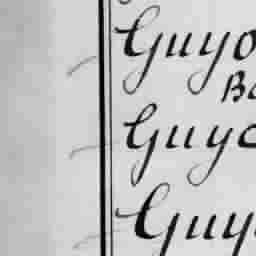 Guyo
Ba
Guyo
Guyo